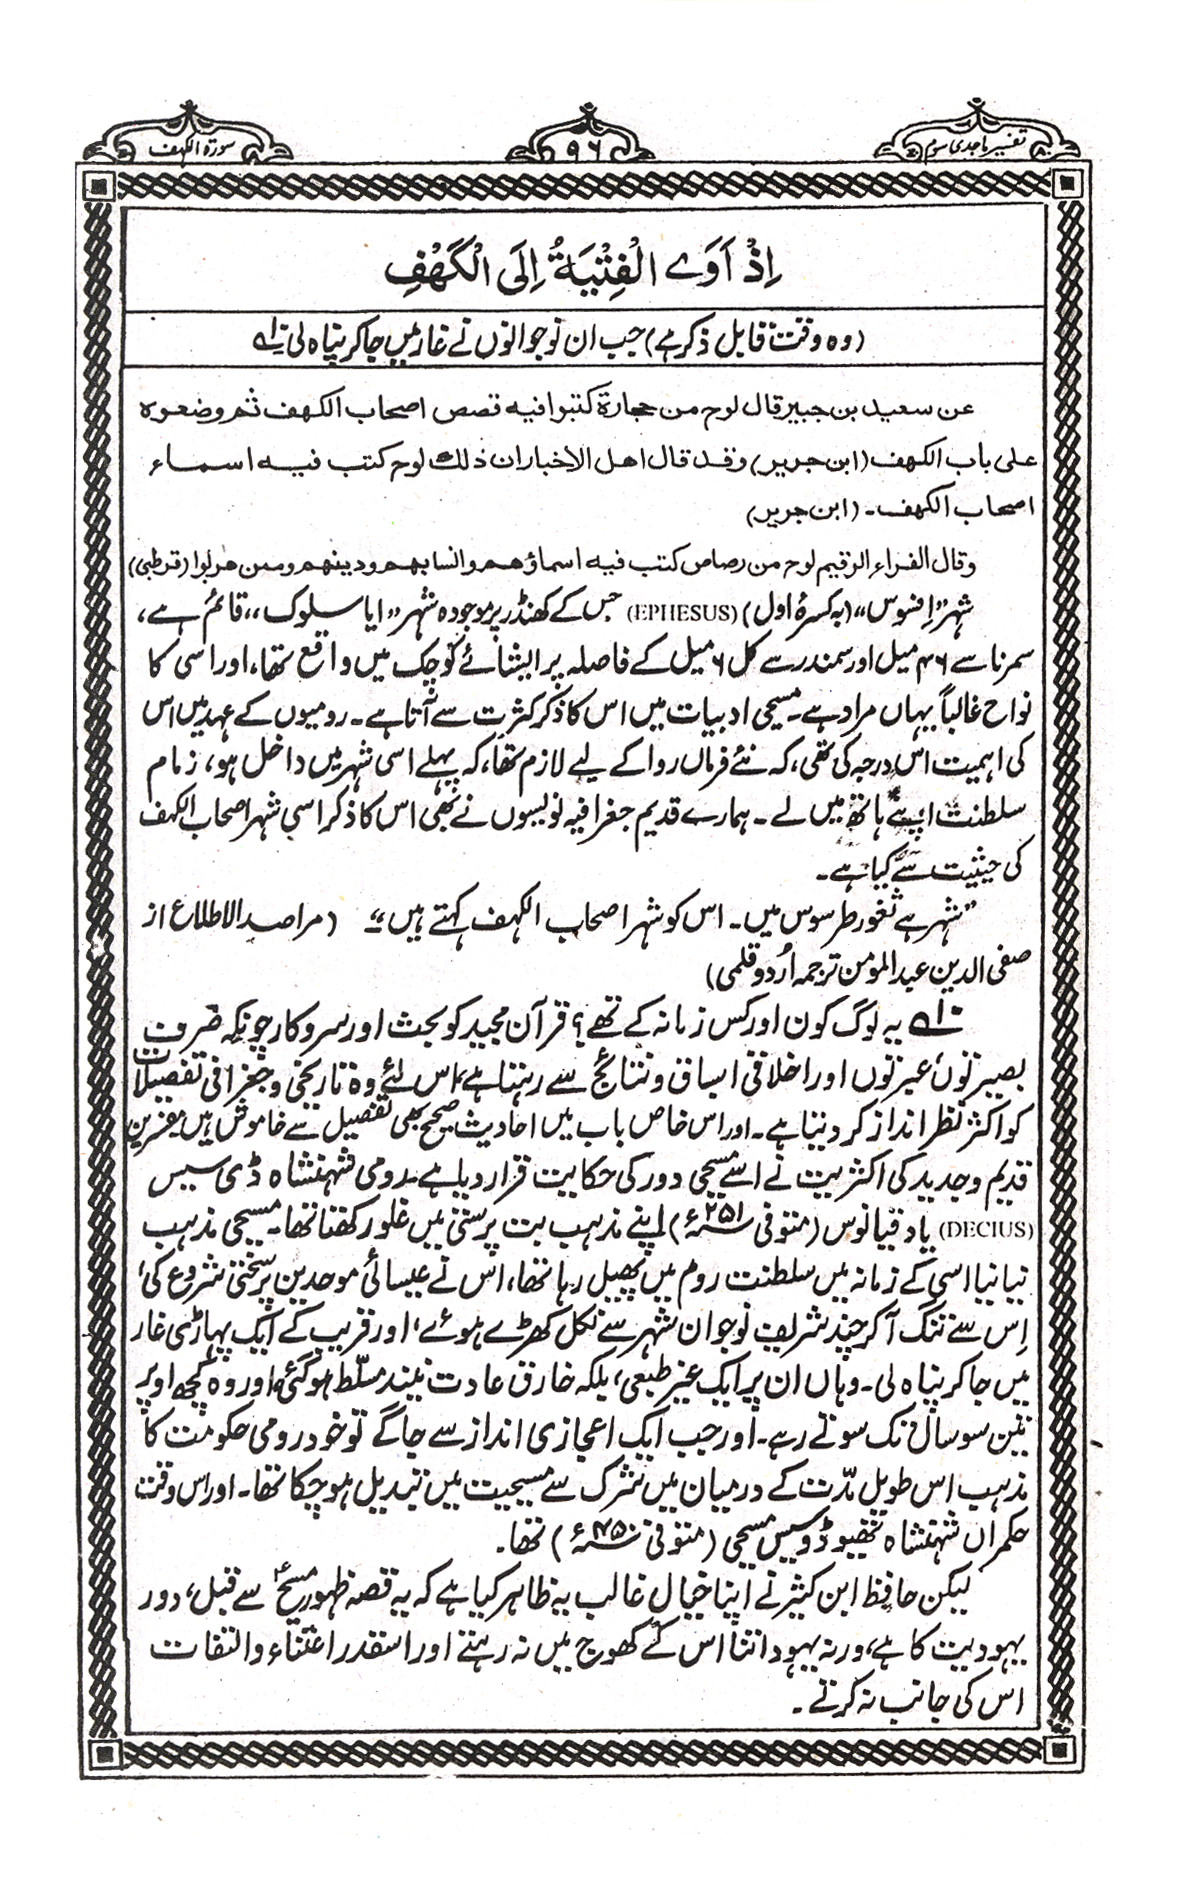 تفسیر ماجدی سوم
۹۶
سورۃ الکہف
اِذْ اَوَے الْفِتْیَةُ اِلَی الْکَهْفِ
(وہ وقت قابل ذکر ہے) جب ان نوجوانوں نے غار میں جاکر پناہ لی ۱۰؎
عن سعید بن جبیر قال لوح من حجارة کتبوا فیه قصص اصحاب الکهف ثم وضعوه
علی باب الکهف (ابن جریر) وقد قال اهل الاخبار ان ذلك لوح کتب فیه اسماء
اصحاب الکهف۔ (ابن جریر)
وقال الفراء الرقیم لوح من رصاص کتب فیه اسماؤهم وانسابهم ودینهم وممن هربوا (قرطبی)
شہر ’’اِفسوس‘‘ (بہ کسرۂ اول) (EPHESUS) جس کے کھنڈر پر موجودہ شہر ’’ایا سلوک‘‘ قائم ہے،
سمرنا سے ۴۶ میل اور سمندر سے کل ۶ میل کے فاصلہ پر ایشائے کوچک میں واقع تھا، اور اسی کا
نواح غالباً یہاں مراد ہے۔ مسیحی ادبیات میں اس کا ذکر کثرت سے آتا ہے۔ رومیوں کے عہد میں اس
کی اہمیت اس درجہ کی تھی، کہ نئے فرماں روا کے لیے لازم تھا، کہ پہلے اسی شہر میں داخل ہو، زمام
سلطنت اپنے ہاتھ میں لے۔ ہمارے قدیم جغرافیہ نویسوں نے بھی اس کا ذکر اسی شہر اصحاب الکہف
کی حیثیت سے کیا ہے۔
’’شہر ہے ثغور طرسوس میں۔ اس کو شہر اصحاب الکہف کہتے ہیں‘‘ (مراصد الاطلاع از
صفی الدین عبد المومن ترجمہ اُردو قلمی)
۱۰؎ یہ لوگ کون اور کس زمانہ کے تھے؟ قرآن مجید کو بحث اور سروکار چونکہ صرف
بصیرتوں، عبرتوں اور اخلاقی اسباق و نتائج سے رہتا ہے، اس لئے وہ تاریخی و جغرافی تفصیلات
کو اکثر نظر انداز کر دیتا ہے۔ اور اس خاص باب میں احادیث صحیح بھی تفصیل سے خاموش ہیں مفسرین
قدیم و جدید کی اکثریت نے اسے مسیحی دور کی حکایت قرار دیا ہے۔ رومی شہنشاہ ڈی سیس
(DECIUS) یا دقیانوس (متوفی ۲۵۱ء) اپنے مذہب بت پرستی میں غلو رکھتا تھا۔ مسیحی مذہب
نیا نیا اسی کے زمانہ میں سلطنت روم میں پھیل رہا تھا، اس نے عیسائی موحدین پر سختی شروع کی،
اِس سے تنگ آکر چند شریف نوجوان شہر سے نکل کھڑے ہوئے، اور قریب کے ایک پہاڑی غار
میں جا کر پناہ لی۔ وہاں ان پر ایک غیر طبعی، بلکہ خارق عادت نیند مسلّط ہوگئی، اور وہ کچھ اوپر
تین سو سال تک سوتے رہے۔ اور جب ایک اعجازی انداز سے جاگے تو خود رومی حکومت کا
مذہب اس طویل مدّت کے درمیان میں شرک سے مسیحیت میں تبدیل ہو چکا تھا۔ اور اس وقت
حکمراں شہنشاہ تھیوڈوسیس مسیحی (متوفی ۴۵۰ء) تھا۔
لیکن حافظ ابن کثیر نے اپنا خیال غالب یہ ظاہر کیا ہے کہ یہ قصہ ظہور مسیحؑ سے قبل، دور
یہودیت کا ہے، ورنہ یہود اتنا اس کے کھوج میں نہ رہتے اور اسقدر اعتناء و التفات
اس کی جانب نہ کرتے۔